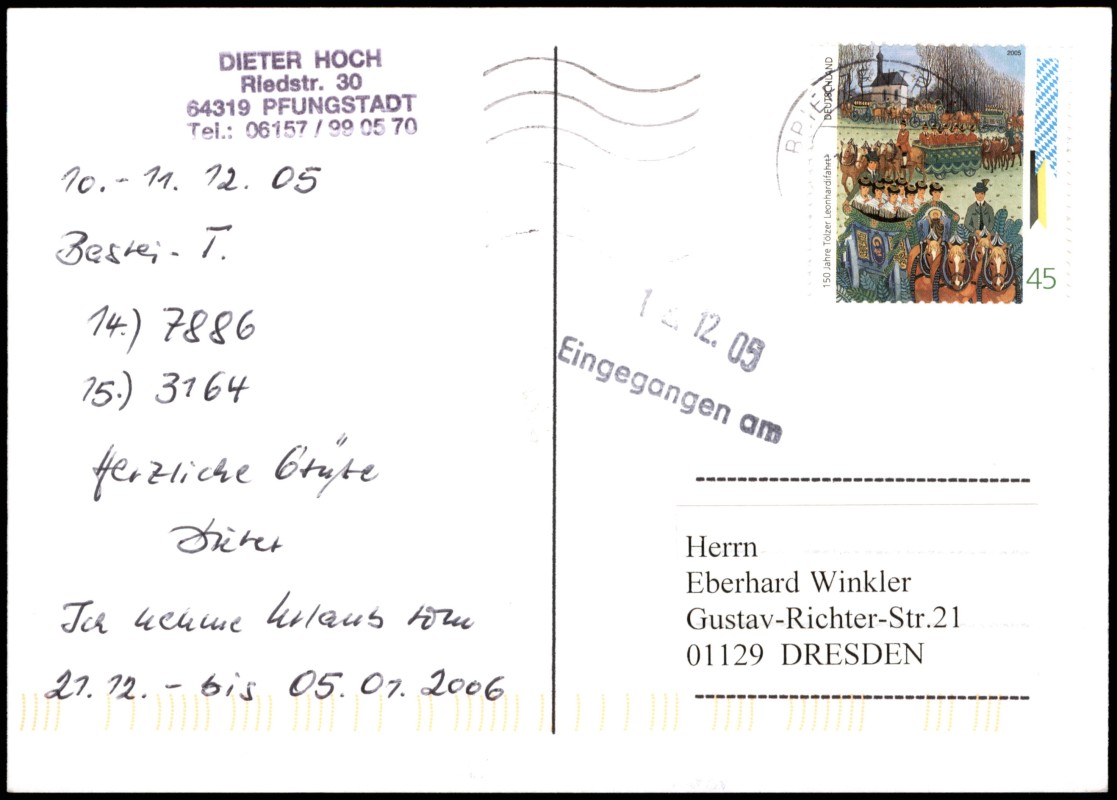 DIETER HOCH
Riedstr. 30
64319 PFUNGSTADT
Tel.: 06157 / 99 05 70
10. - 11. 12. 05
Bastei - T.
14.) 7886
15.) 3164
Herzliche Grüße
Dieter
Ich nehme Urlaub vom
21.12. - bis 05.01.2006
BRIEF
DEUTSCHLAND
2005
150 Jahre Tölzer Leonhardifahrt
45
12. 05
Eingegangen am
Herrn
Eberhard Winkler
Gustav-Richter-Str.21
01129 DRESDEN